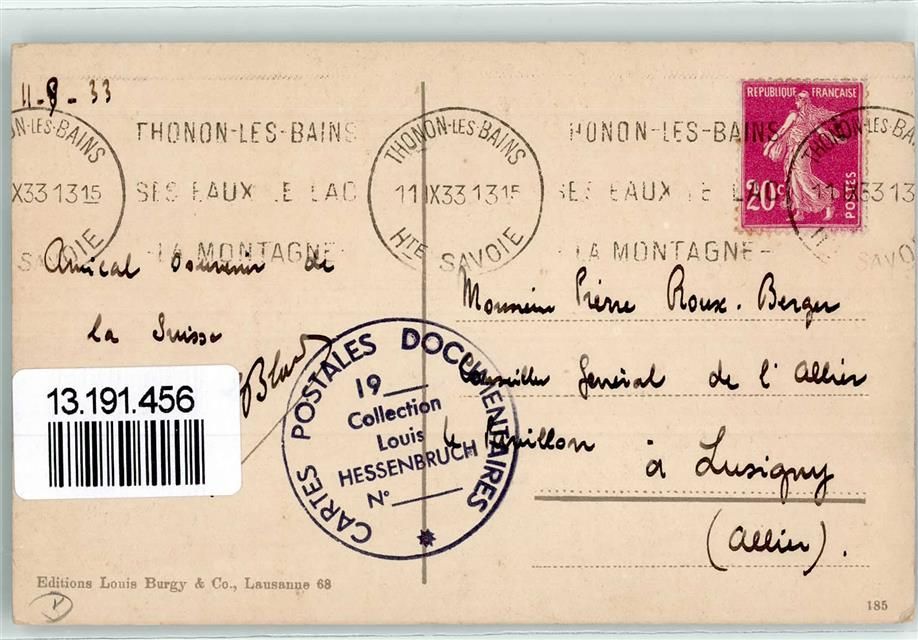 11-9-33
THONON-LES-BAINS
SES EAUX LE LAC
LA MONTAGNE
N-LES-BAINS
X33 1315
SAVOIE
THONON-LES-BAINS
11 IX33 1315
HTE SAVOIE
HONON-LES-BAINS
SES EAUX LE LAC
LA MONTAGNE
REPUBLIQUE FRANÇAISE
20c
POSTES
THONON-LES-BA
11 IX33 13
SAVO
Amical souvenir de
la Suisse
13.191.456
CARTES POSTALES DOCUMENTAIRES
19
Collection
Louis
HESSENBRUCH
N°
Monsieur Pierre Roux-Berger
Conseiller Général de l'Allier
le Pavillon
à Lusigny
(Allier).
Editions Louis Burgy & Co., Lausanne 68
185